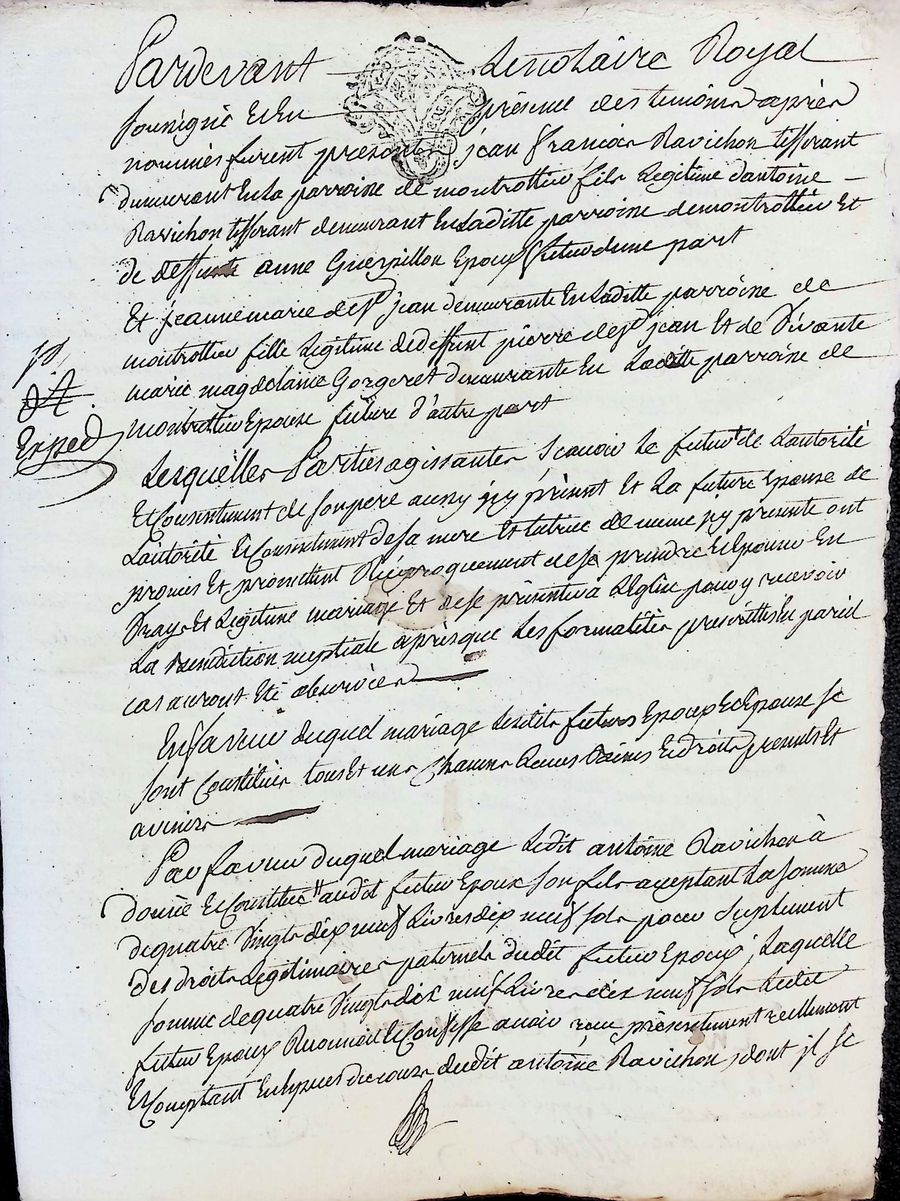 Pardevant Lenotaire Royal
soussigné Et En présence des temoins après
nommés furent présents jean françois Ravichon tisserant
demeurant En La parroisse de montrottier fils Legitime d'antoine
Ravichon tisserant demeurant En Laditte parroisse demontrottier Et
de deffunte anne Guerpillon Epoux futur d'une part
Et jeanne marie de st jean demeurante En Laditte parroisse de
montrottier fille Legitime dedeffunt pierre de st jean Et de vivante
marie magdelaine Gorgeret demeurante En Laditte parroisse de
montrottier Epouse future d'autre part
Exped
Lesquelles Parties agissantes scavoir Le futur de Lautorité
Et Consentement de son pere aussy jcy présent Et La future Epouse de
Lautorité Et Consentement de sa mere Et tutrice de meme jcy presente ont
promis Et promettent Reciproquement de se prendre Et Epouser En
vray Et Legitime mariage Et de se présenter à LEglise pour y recevoir
La Benediction nuptiale après que Les formalités prescrittes En pareil
cas auront Eté observées
En faveur duquel mariage Lesdits futurs Epoux Et Epouse se
sont Constitués tous Et uns Chacuns Leurs Biens Et droits presents Et
avenirs
Par faveur duquel mariage Ledit antoine Ravichon à
donné Et Constitué audit futur Epoux son fils aceptant La somme
de quatre vingts dix neuf Livres dix neuf sols pour suplement
des droits Legitimaires paternels dudit futur Epoux, Laquelle
somme de quatre vingts dix neuf Livres dix neuf sols Ledit
futur Epoux Reconnoit Et Confesse avoir reçu présentement reellement
Et Comptant En Especes de cours dudit antoine Ravichon, dont jl se